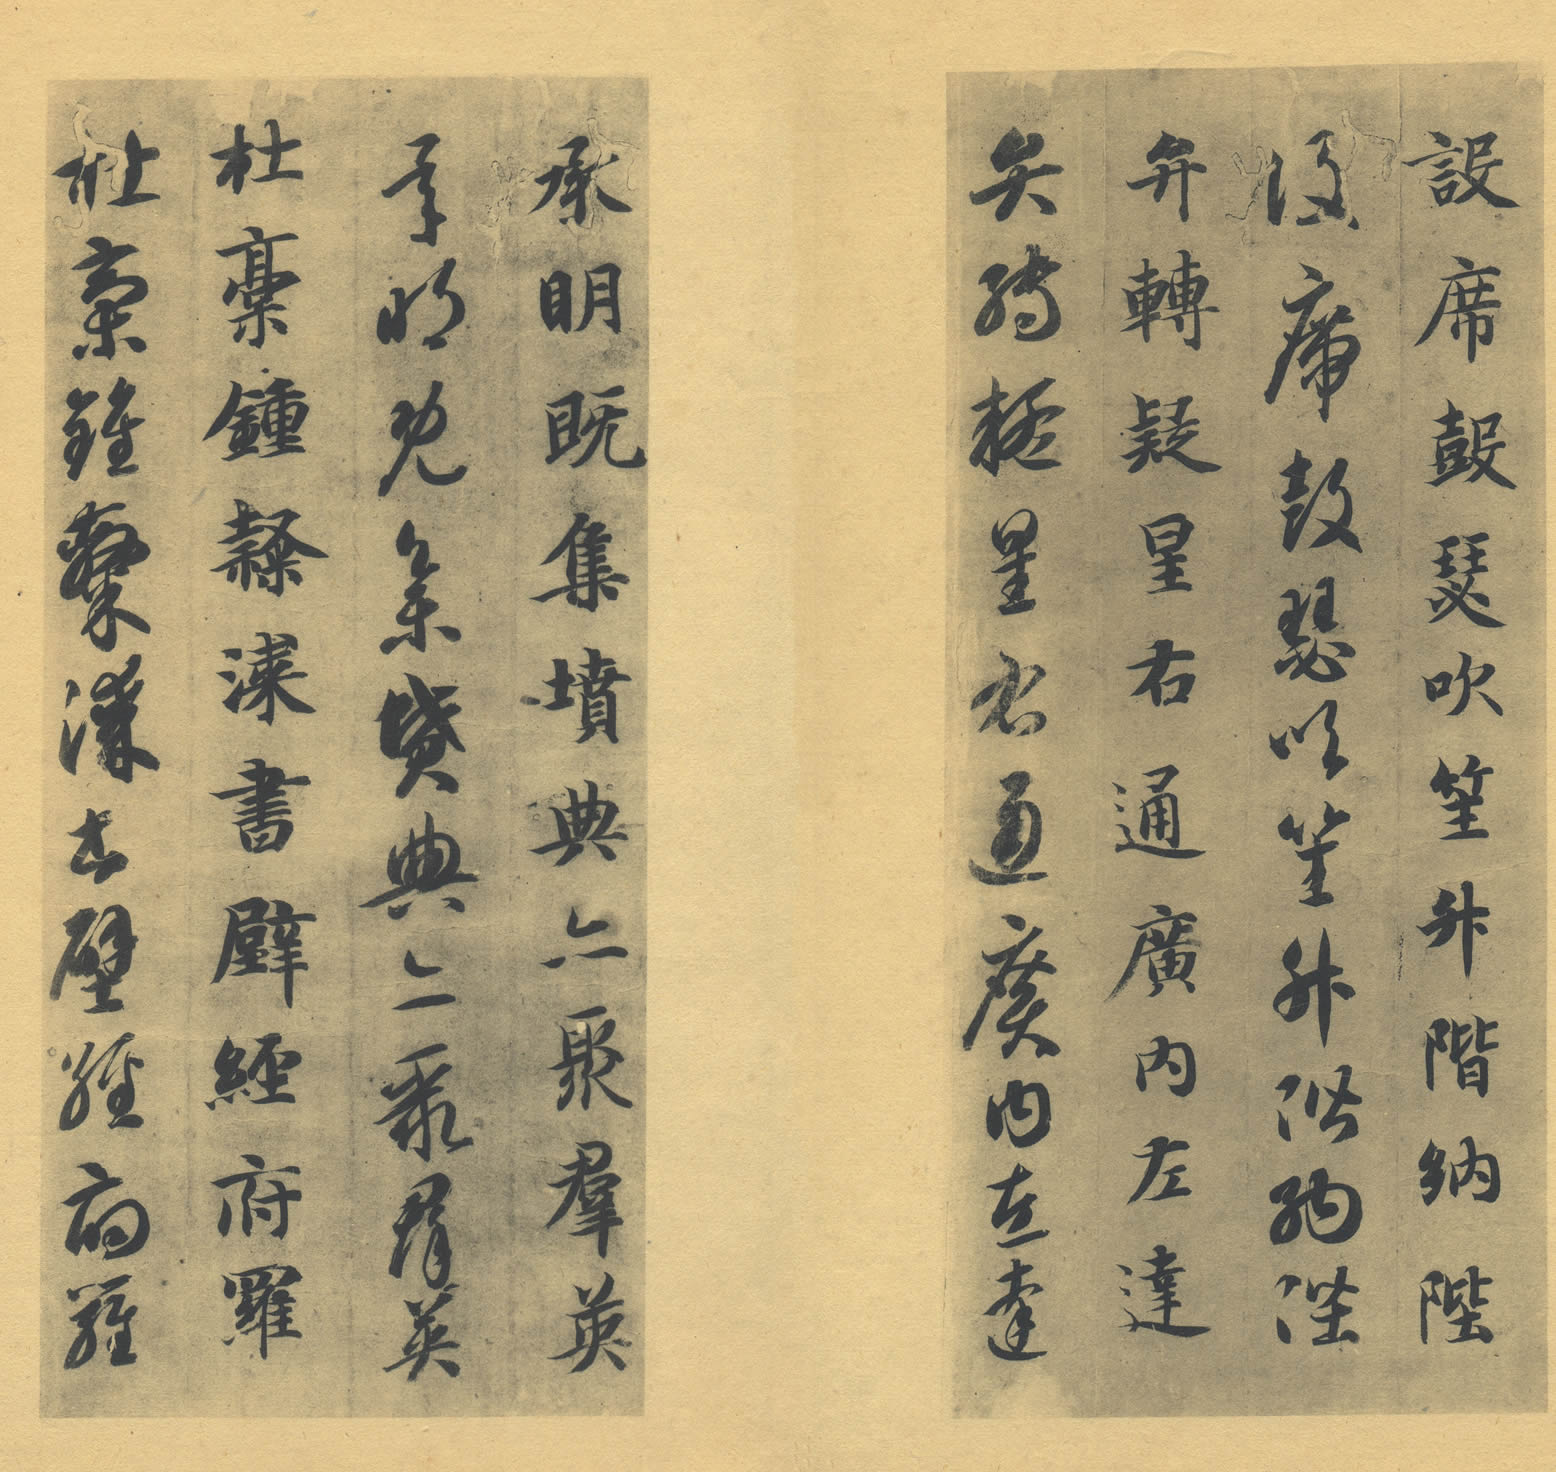 設席鼓瑟吹笙升階納陛
設席鼓瑟吹笙升階納陛
弁轉疑星右通廣內左達
弁轉疑星右通廣內左達
承明既集墳典亦聚羣英
承明既集墳典亦聚羣英
杜稾鍾隸漆書壁經府羅
杜稾鍾隸漆書壁經府羅